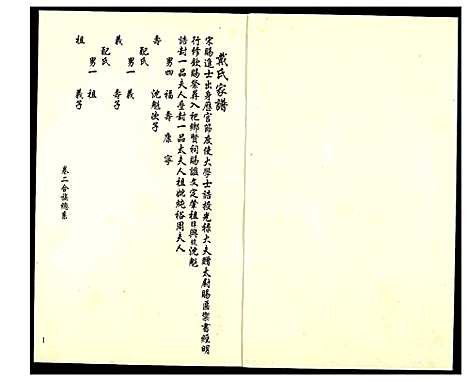 戴氏家譜
宋賜進士出身歷官節度使大學士誥授光祿大夫贈太尉賜區崇書經明
行修欽賜祭葬入祀鄉賢祠賜謚文定葬祖
誥封一品夫人疊封一品太夫人祖妣純裕周夫人
男四 福 壽 康 寧
壽 沈魁次子
配氏
男一 義
義 壽子
配氏
男一 祖
祖 義子
卷二合族總系
1